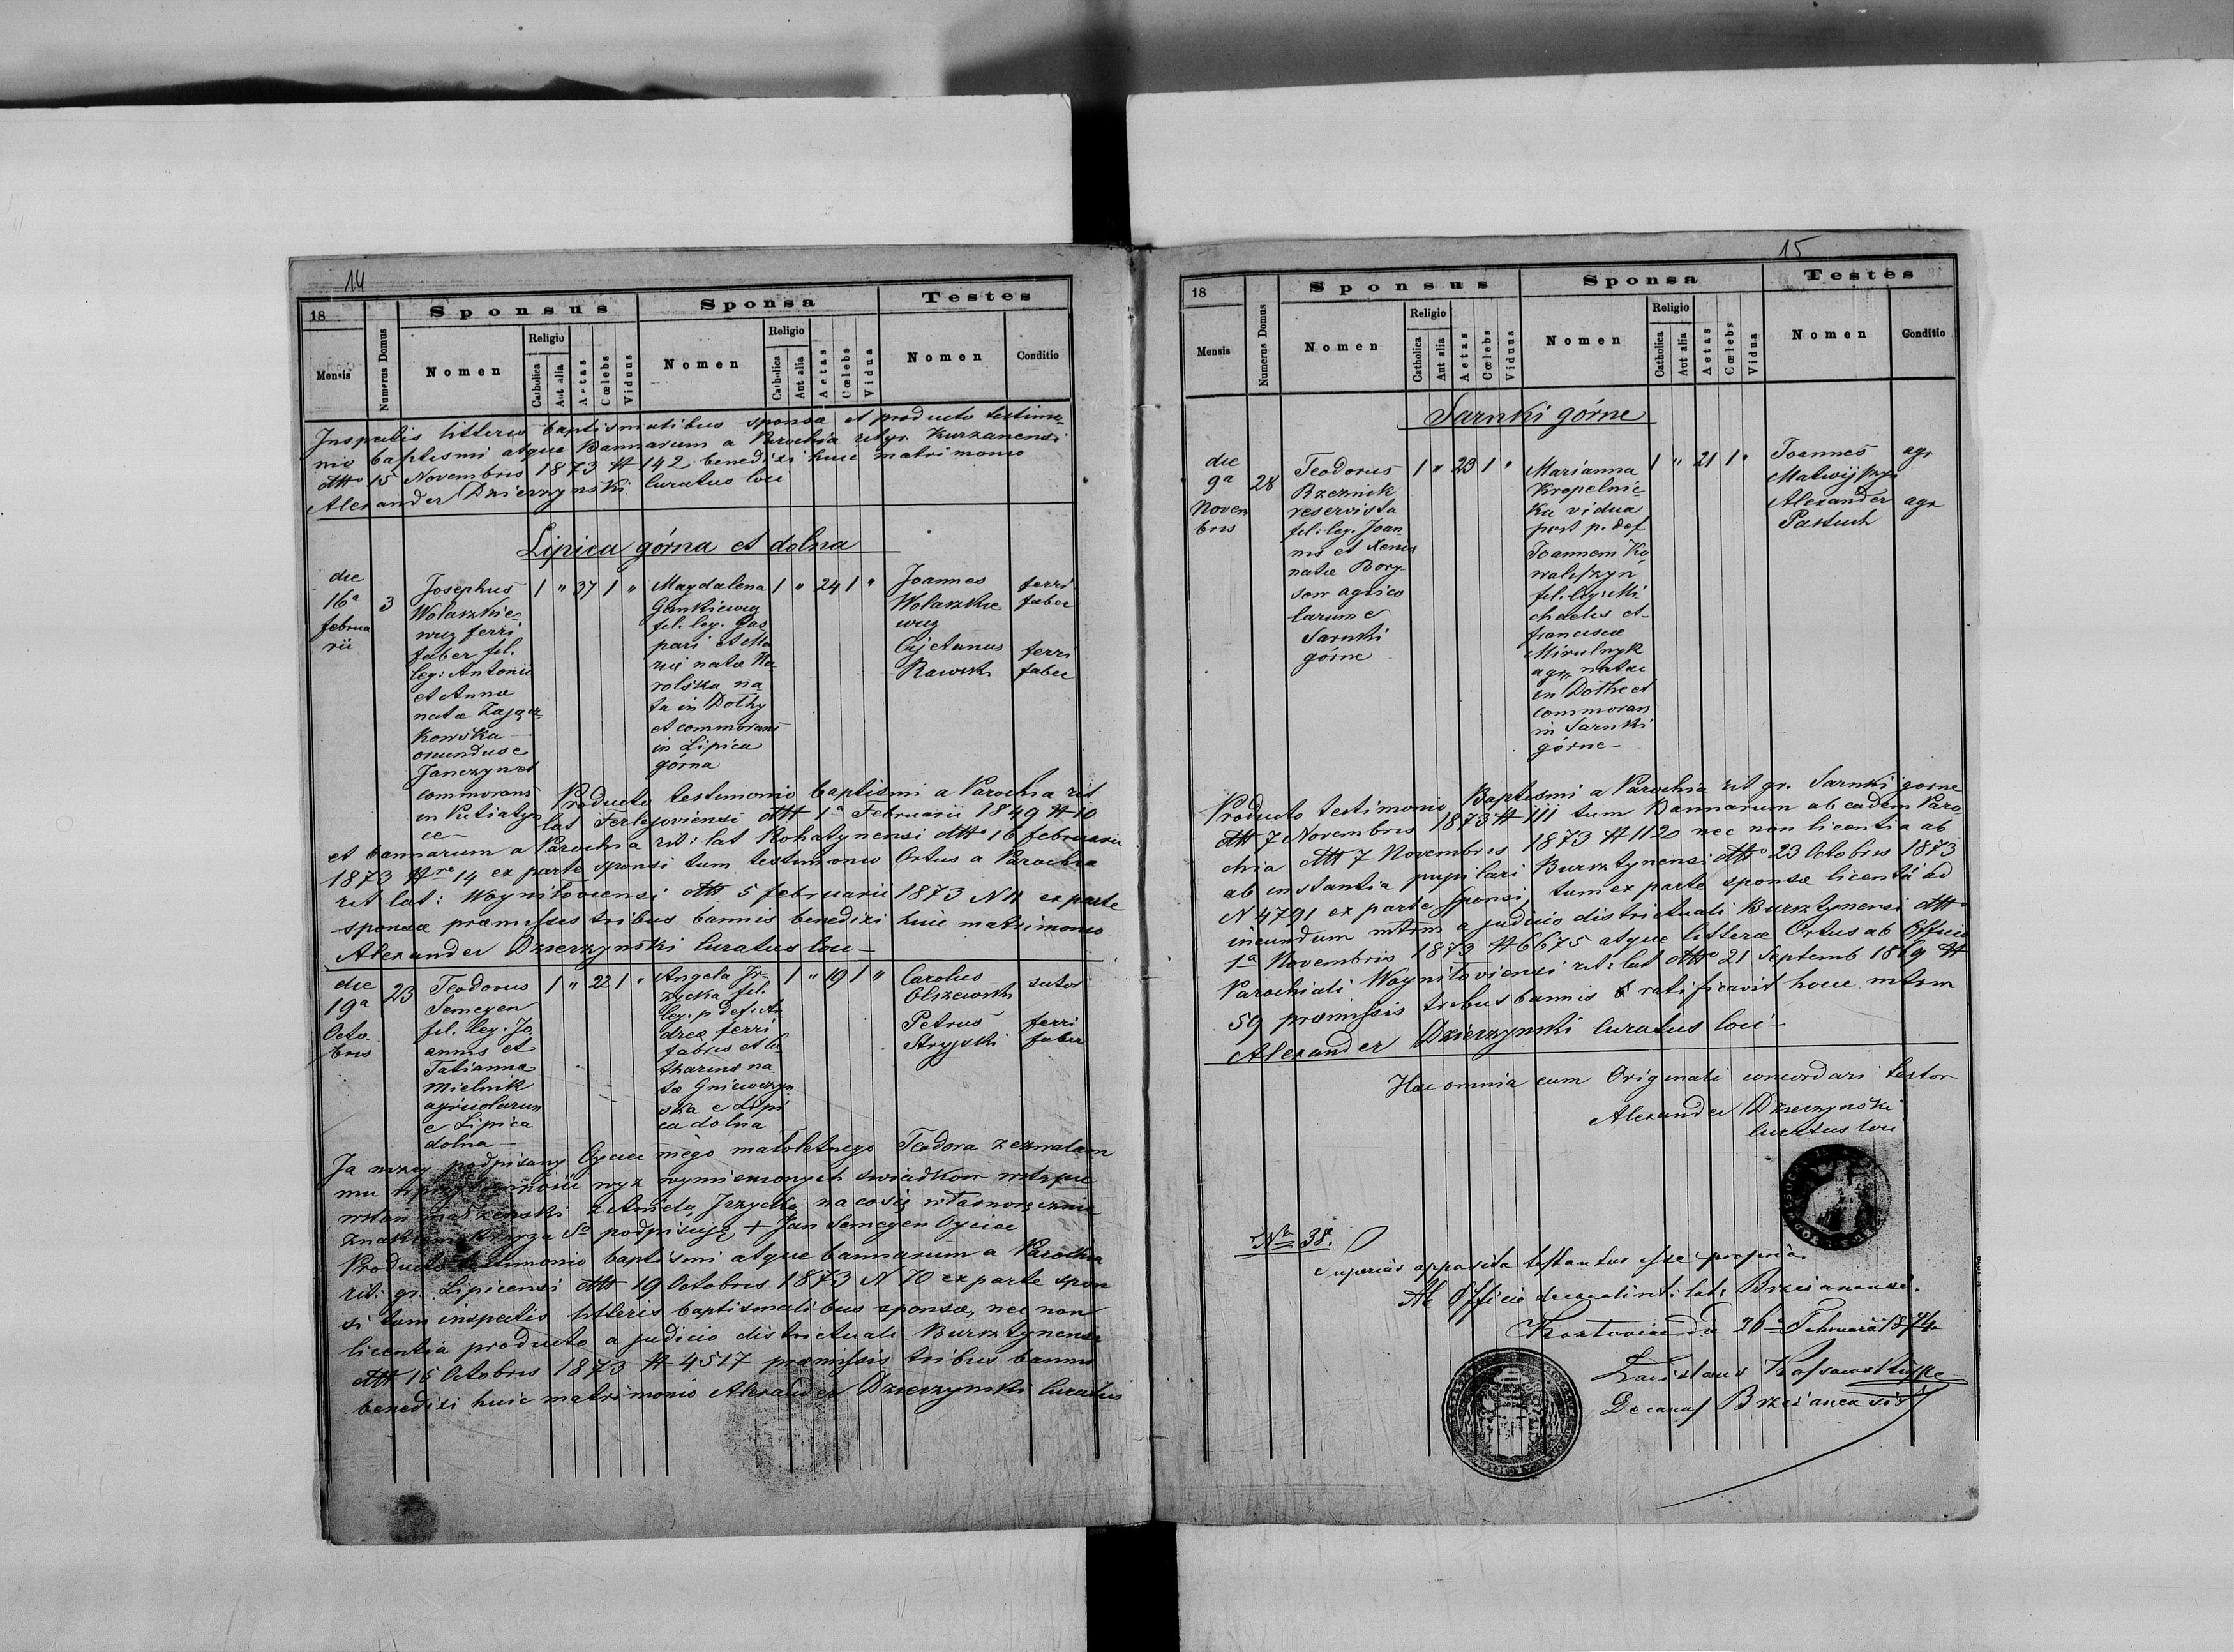 14
18
Mensis
Numerus Domus
Sponsus
Nomen
Religio
Catholica
Aut alia
Aetas
Cœlebs
Viduus
Sponsa
Nomen
Religio
Catholica
Aut alia
Aetas
Cœlebs
Vidua
Testes
Nomen
Conditio
Inspectis litteris baptismalibus sponsa et producto testimo-
nio baptismi atque Bannarum a Parochia rit gr. Kurzanensi
dtto 15 Novembris 1873 # 142 benedixi huic matrimonio
Alexander Dzierzynski Curatus loci
Lipica górna et dolna
die
16a
februa
rii
3
Josephus
Wolaszkie-
wicz ferri
faber fil.
leg: Antonii
et Anna
natæ Zającz-
kowska
oriundus e
Janczyn et
commorans
in Putiatyn
ce
1 " 37 1 "
Magdalena
Gankiewicz
fil. leg. Gas
pari et Ma
riæ natæ Ka
rolska na
ta in Dothy
et commorans
in Lipica
górna
1 " 24 1 "
Joannes
Wolaszkie
wicz
Cajetanus
Rawski
ferri
faber
ferri
faber
Producto testimonio baptismi a Parochia rit
lat Ferlejoviensi dtt 1a Februarii 1849 # 10
et bannarum a Parochia rit: lat Rohatynensi dtto 16 februarii
1873 #ro 14 ex parte sponsi tum testimonio Ortus a Parochia
rit lat: Woyniloviensi dtt 5 februarii 1873 N 11 ex parte
sponsæ præmissis tribus bannis benedixi huic matrimonio
Alexander Dzierzynski Curatus loci
die
19a
Octo-
bris
23
Teodorus
Semegen
fil. leg. Jo
annis et
Tatianna
Mielnik
agricolarum
e Lipica
dolna
1 " 22 1 "
Angela Jr-
zycka fil.
leg. p def: An
dreæ ferri
fabris et Ca
tharina na
tæ Gniewczyn
ska e Lipi
ca dolna
1 " 19 1 "
Carolus
Olszewski
Petrus
Stryjski
sutor
ferri
faber
Ja nizey podpisany Oyciec mego maloletnego Teodora zezwalam
mu w przytomności wyz wymienionych swiadkow wstąpic
w stan malzenski z Anielą Jrzycką na co się wlasnoręcznie
znakiem krzyza So podpisuję + Jan Semegen Oyciec
Producto testimonio baptismi atque bannarum a Parochia
rit: gr. Lipicensi dtt 19 Octobris 1873 N 70 ex parte spon
si tum inspectis litteris baptismalibus sponsæ, nec non
licentia producto a judicio districtuali Bursztynensi
dtt 15 Octobris 1873 # 4517 præmissis tribus bannis
benedixi huic matrimonio Alexander Dzierzynski Curatus
15
18
Mensis
Numerus Domus
Sponsus
Nomen
Religio
Catholica
Aut alia
Aetas
Cœlebs
Viduus
Sponsa
Nomen
Religio
Catholica
Aut alia
Aetas
Cœlebs
Vidua
Testes
Nomen
Conditio
Sarnki górne
die
9a
Novem
bris
28
Teodorus
Brzeznik
reservista
fil: leg. Joan
nis et Xenia
natæ Bory-
son agrico
larum e
Sarnki
górne
1 " 23 1 "
Marianna
Kropelnic-
ka vidua
post p. def
Joannem Ko
walyszyn
fil. leg. Mi
chaelis et
franciscæ
Mirulnyk
agr. natæ
in Dothe et
commoran
in Sarnki
górne
1 " 21 1 "
Joannes
Matwijszyn
Alexander
Pastuch
agr
agr
Producto testimonio Baptismi a Parochia rit gr. Sarnki gorne
dtt 7 Novembris 1873 # 1111 tum Bannarum ab eadem Paro
chia dtt 7 Novembris 1873 # 1120 nec non licentia ab
ab instantia pupilari Bursztynensi dtto 23 Octobris 1873
N 4791 ex parte sponsi, tum ex parte sponsæ licentiá ad
ineundum mtrm a judicio districtuali Bursztynensi dtto
1a Novembris 1873 # 6675 atque litteræ Ortus ab Officio
Parochiali Woyniloviensi rit: lat dtto 21 Septemb 1869 #
59 præmissis tribus bannis ratificavit hocce mtrm
Alexander Dzierzynski Curatus loci
Hæc omnia cum Originali concordari testor
Alexander Dzierzynski
Curatus loci
Nr 38.
Superius apposita testantur esse propria.
Ab Officio decanali rit: lat: Brzezanensi.
Kozlowiae die 26a Februarii 1874
Ladislaus
Decanus Brzezanensis